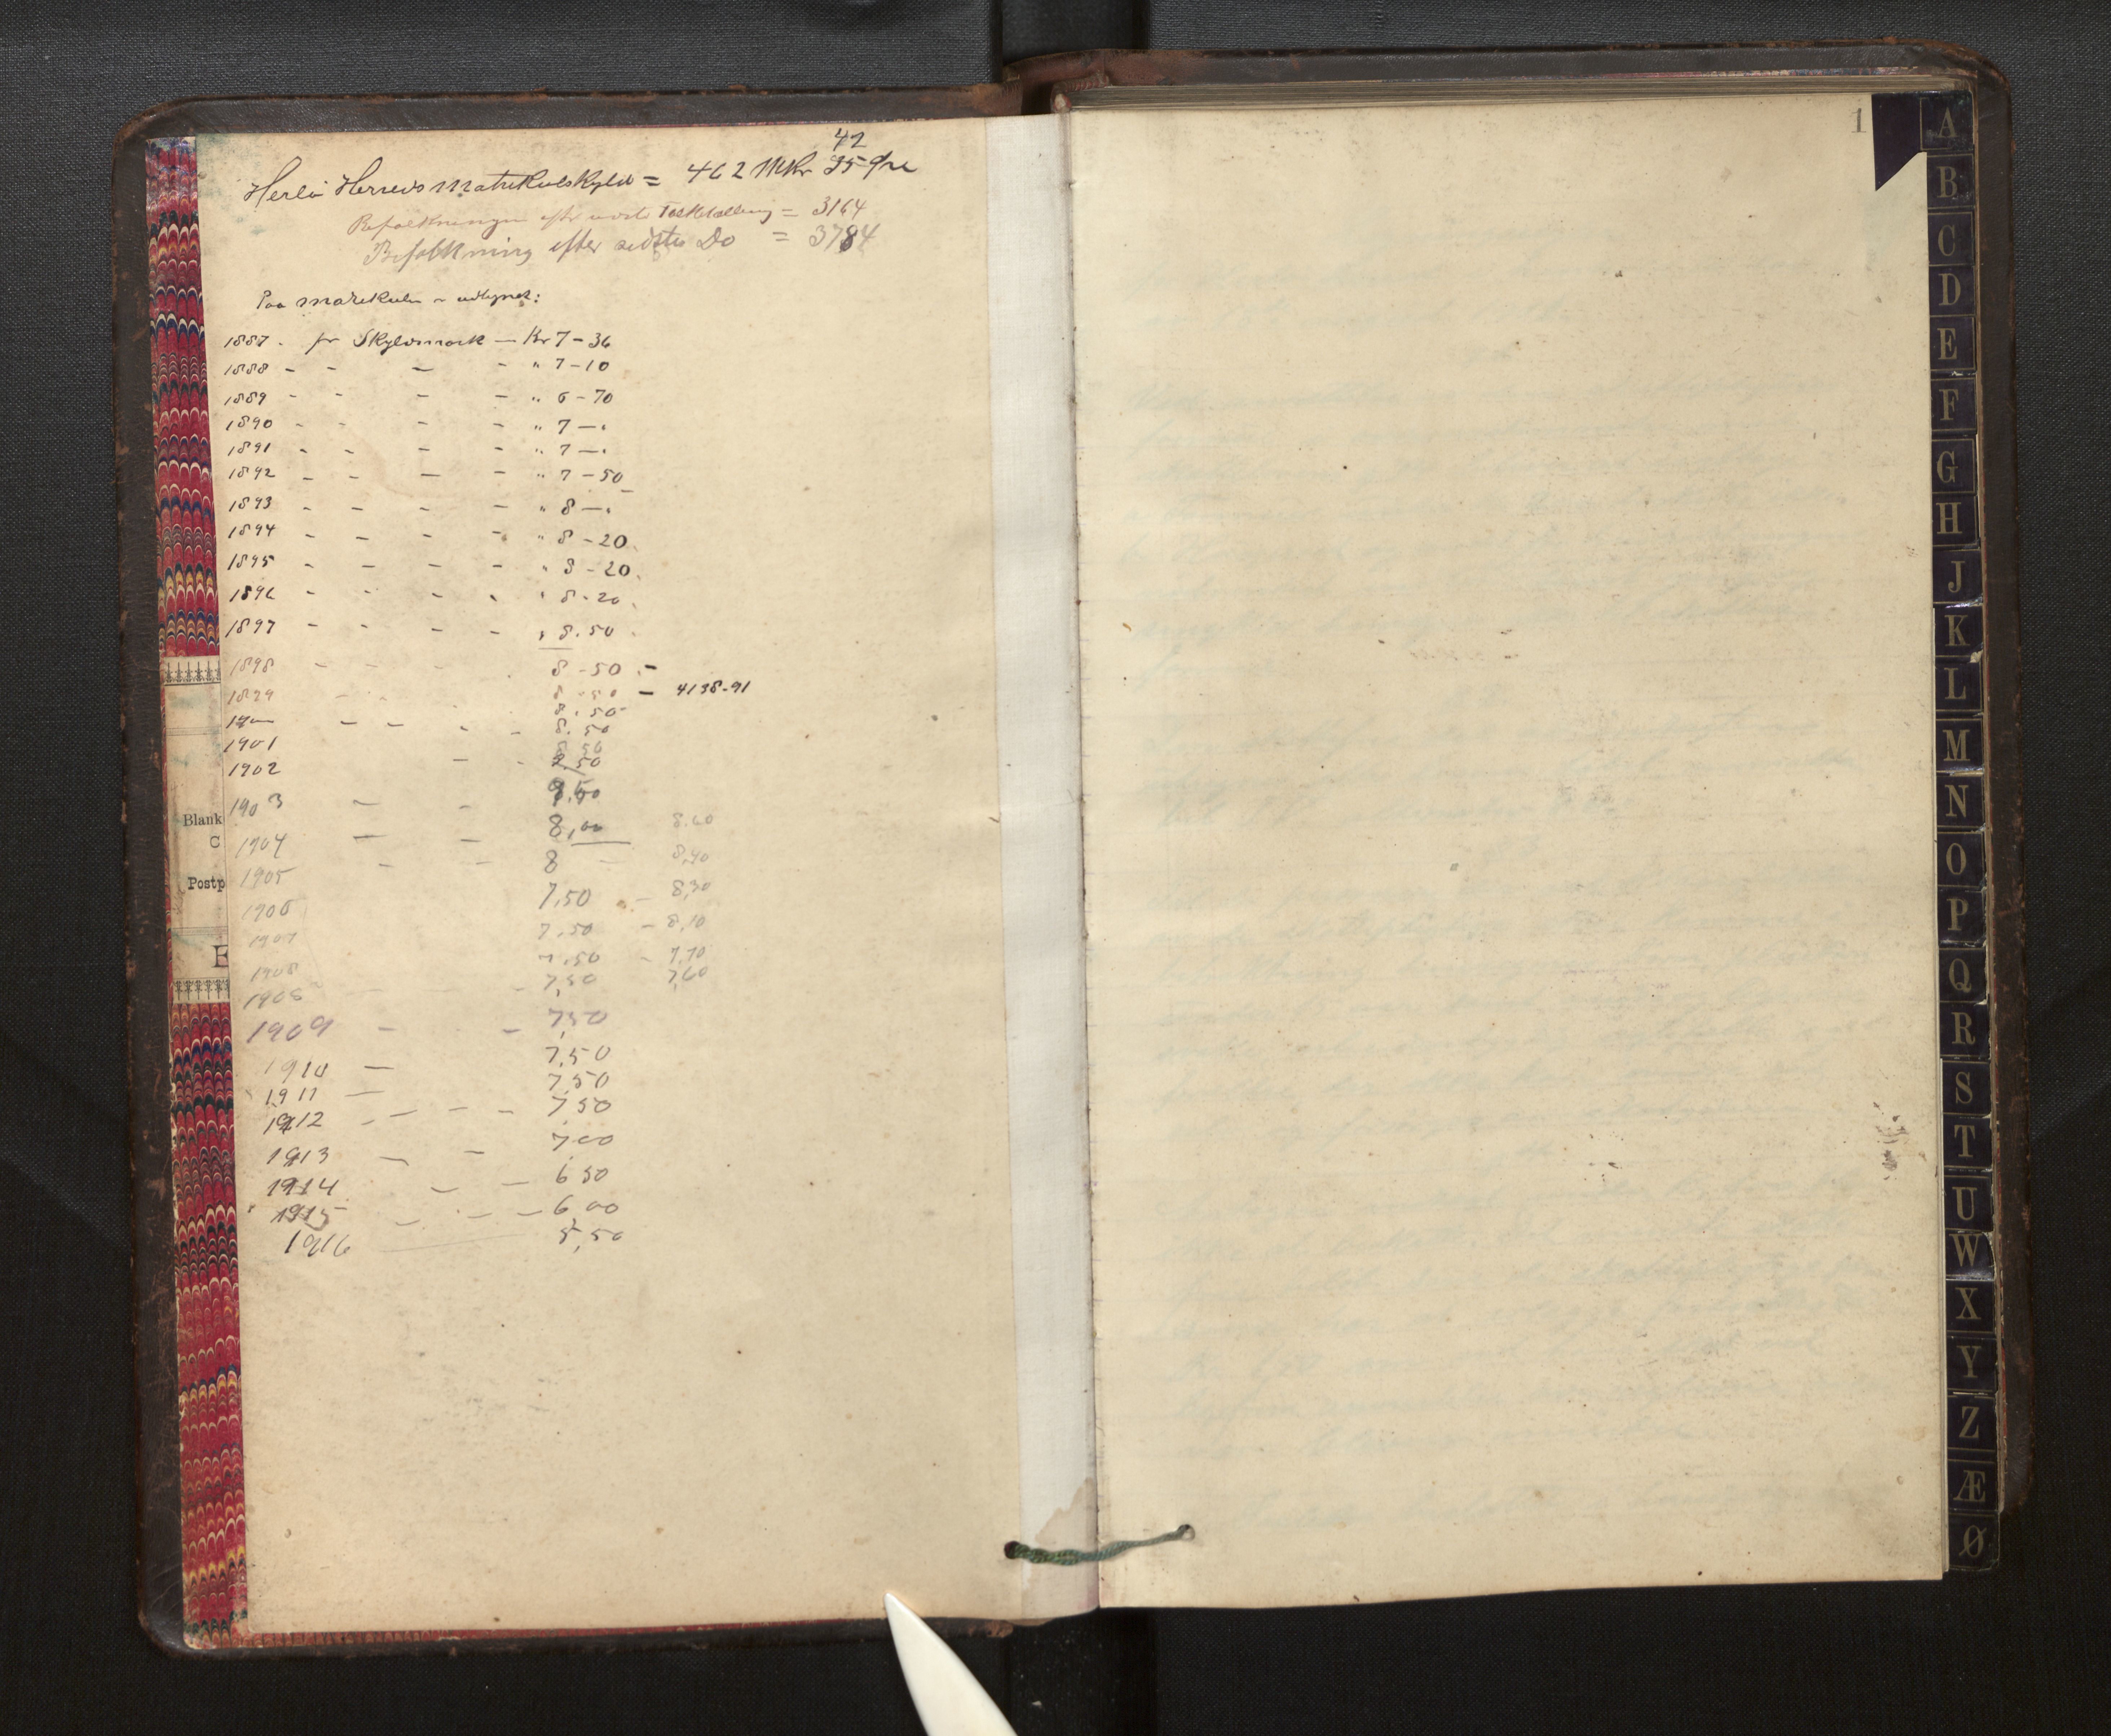 42
Herlö Herreds Matrikulskyld = 462 Mkr 35 Øre
Befolkningen efter Folketælling = 3164
Befolkning efter sidste Do = 3784
Paa Matrikulen er udlignet:
1887 - pr Skyldmark — Kr 7-36
1888 - - - - " 7-10
1889 - - - - " 6-70
1890 - - - - " 7—"
1891 - - - - " 7—"
1892 - - - - " 7-50
1893 - - - - " 8—"
1894 - - - - " 8-20
1895 - - - - " 8-20
1896 - - - - " 8-20
1897 - - - - " 8.50
1898 - - - 8-50 -
1899 - - 8-50 - 4138-91
8.50
1900 - - - - 8.50
1901 8 50
1902 - - 8.50
1903 - -
1904 - - 8,00 8.60
1905 - - 8 - 8,40
1906 7,50 - 8,30
1907 7,50 - 8,10
1908 7,50 - 7,70
7,50 7,60
1909 - - 7,50
1910 — 7,50
1911 — 7,50
1912 - - - - 7,50
1913 - - 7,00
1914 - - 6 50
1915 - - - - 6 00
1916 5,50
Blank
C
Postp
E
1
A
B
C
D
E
F
G
H
J
K
L
M
N
O
P
Q
R
S
T
U
W
X
Y
Z
Æ
Ø